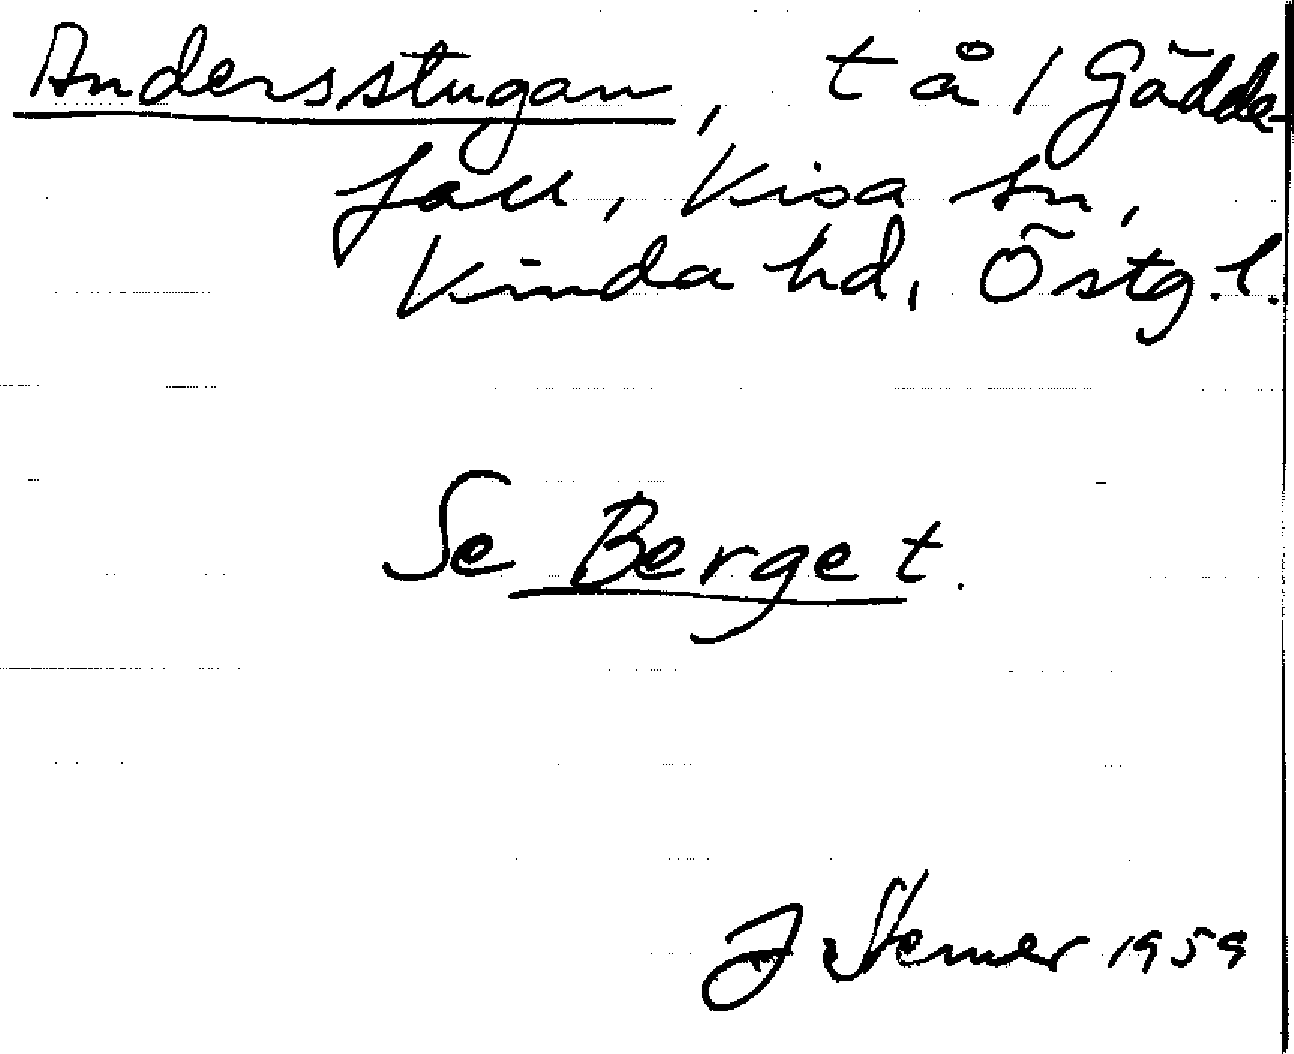 Andersstugan, t å 1 Gädde-
fall, Kisa sn,
Kinda hd, Östg. l.
Se Berget.
J Sterner 1959